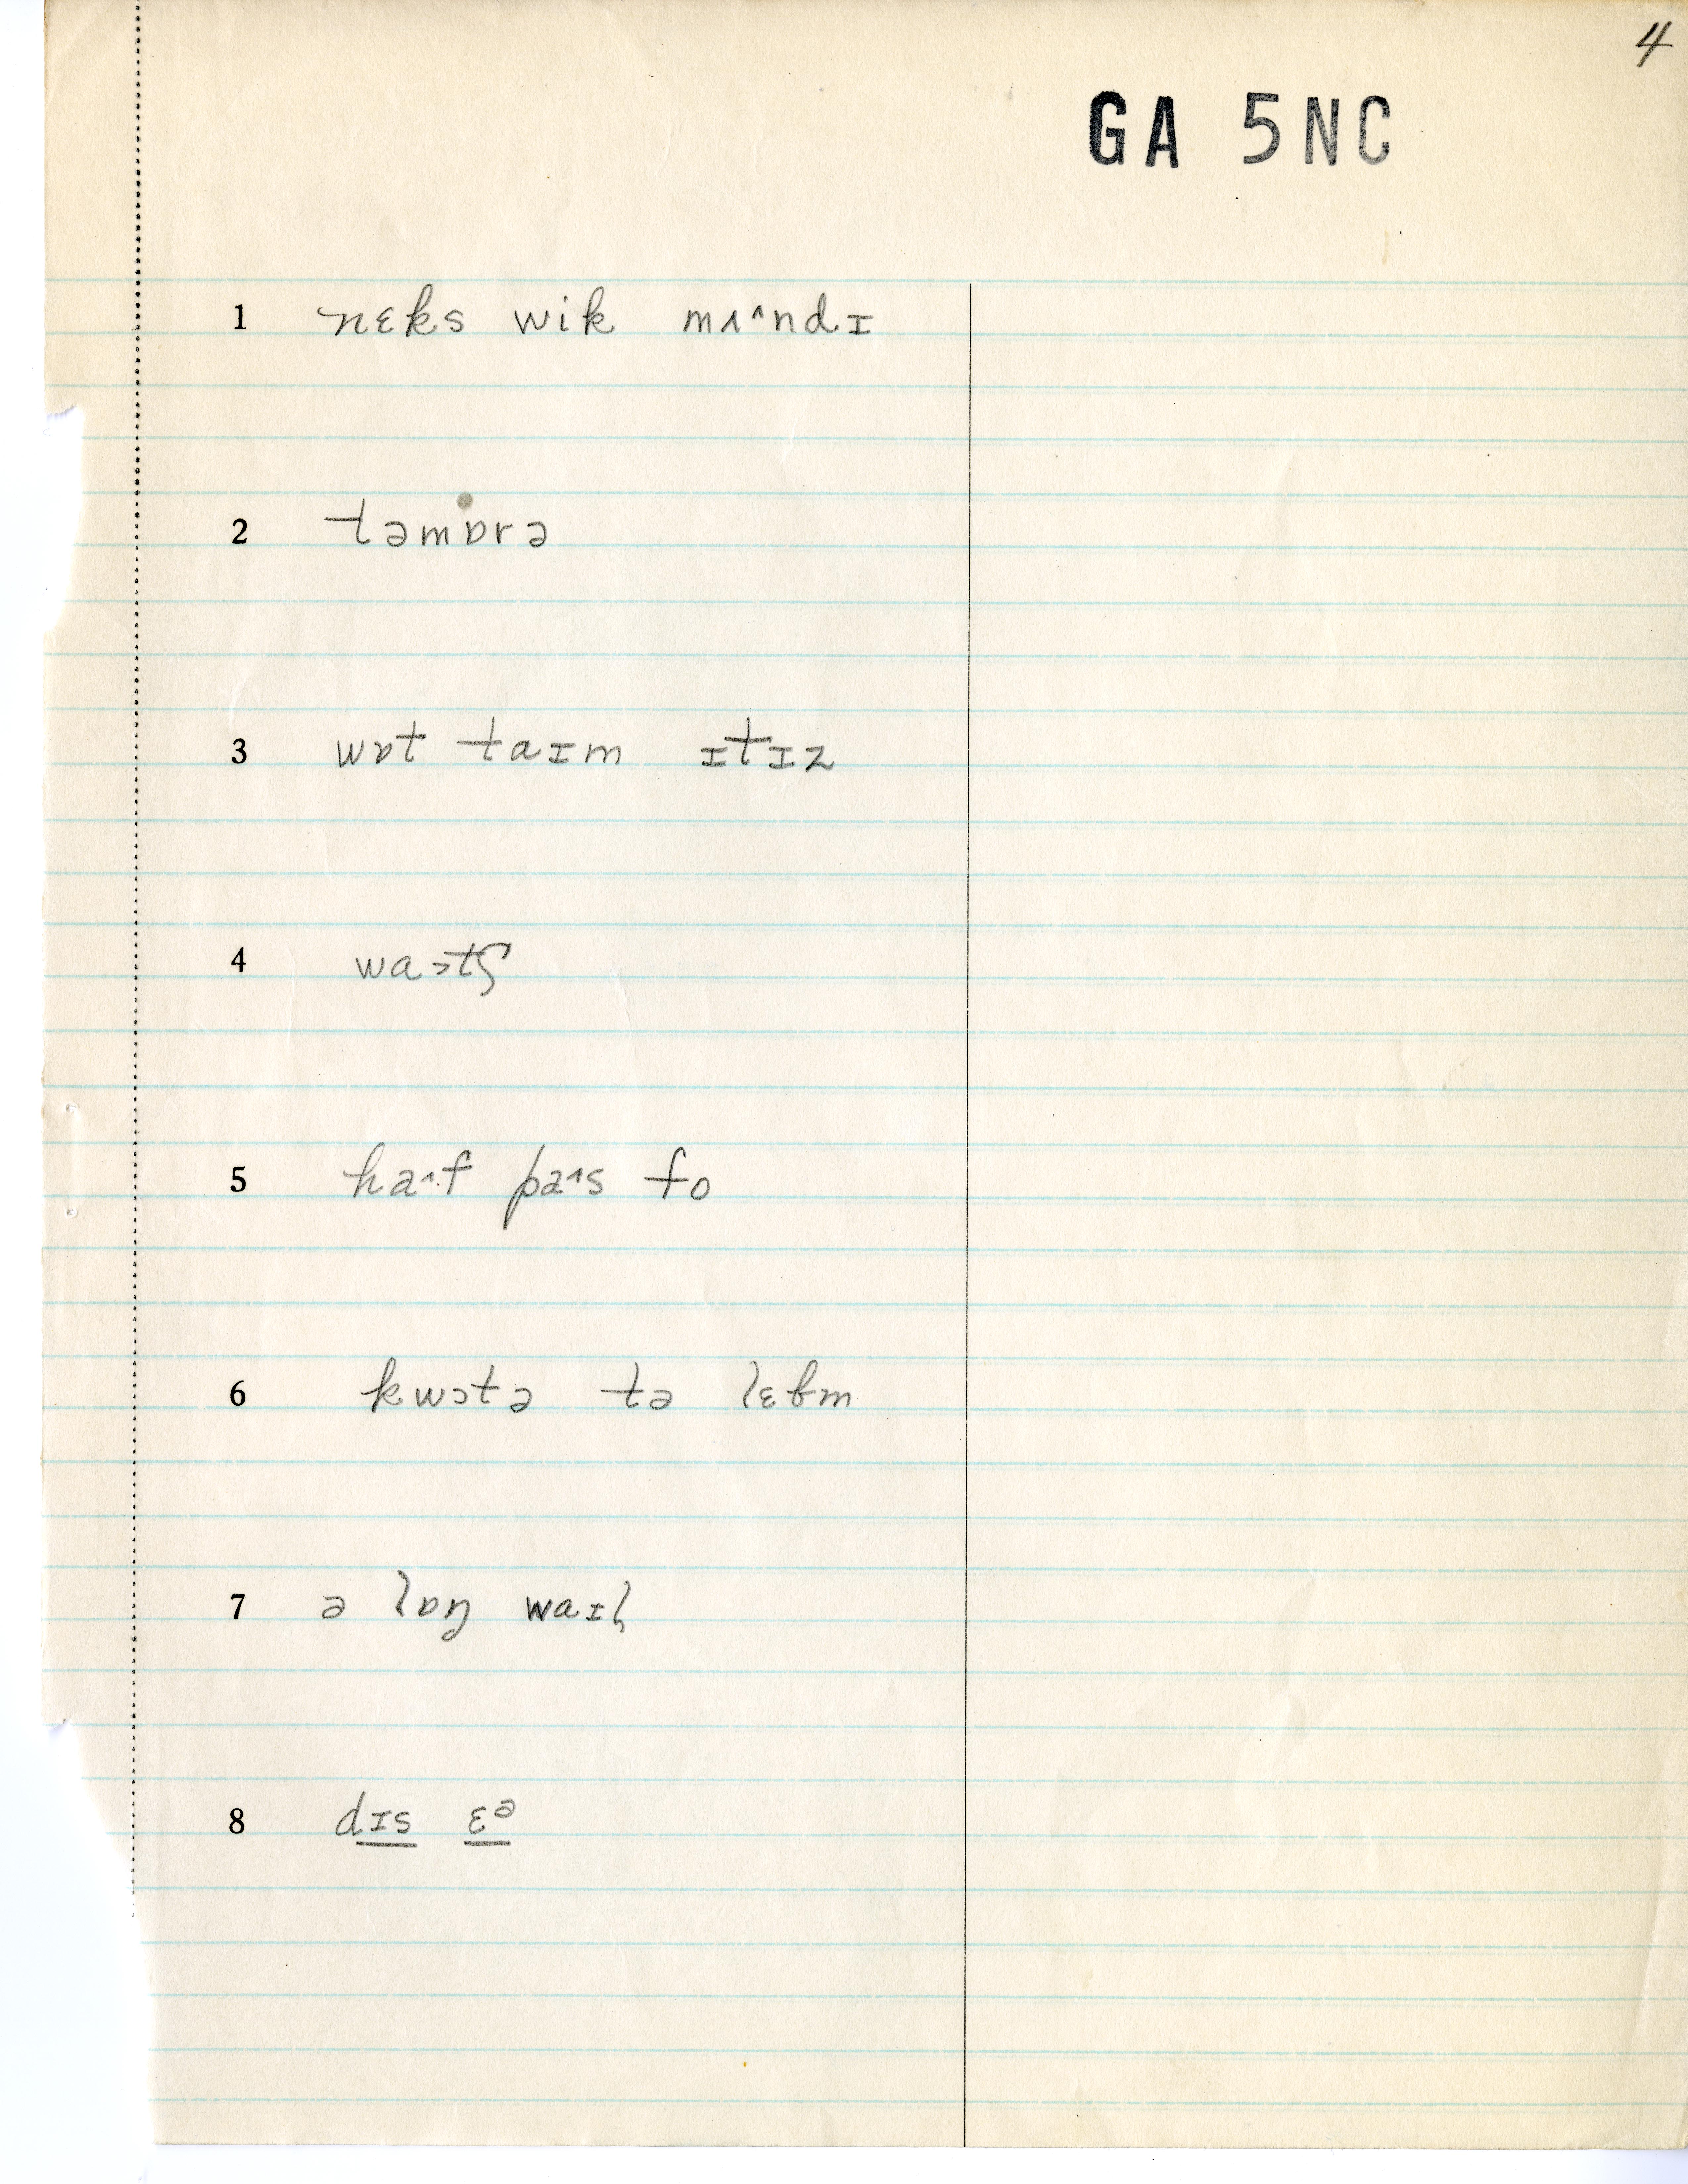 4
GA 5NC
1 nɛks wik mʌ˄ndɪ
2 təmɒrə
3 wɒt taɪm ɪtɪz
4 waɔtʃ
5 ha˄f pa˄s fo
6 kwɔtə tə lɛbm
7 ə lɒŋ waɪl
8 dɪs ɛᵊ